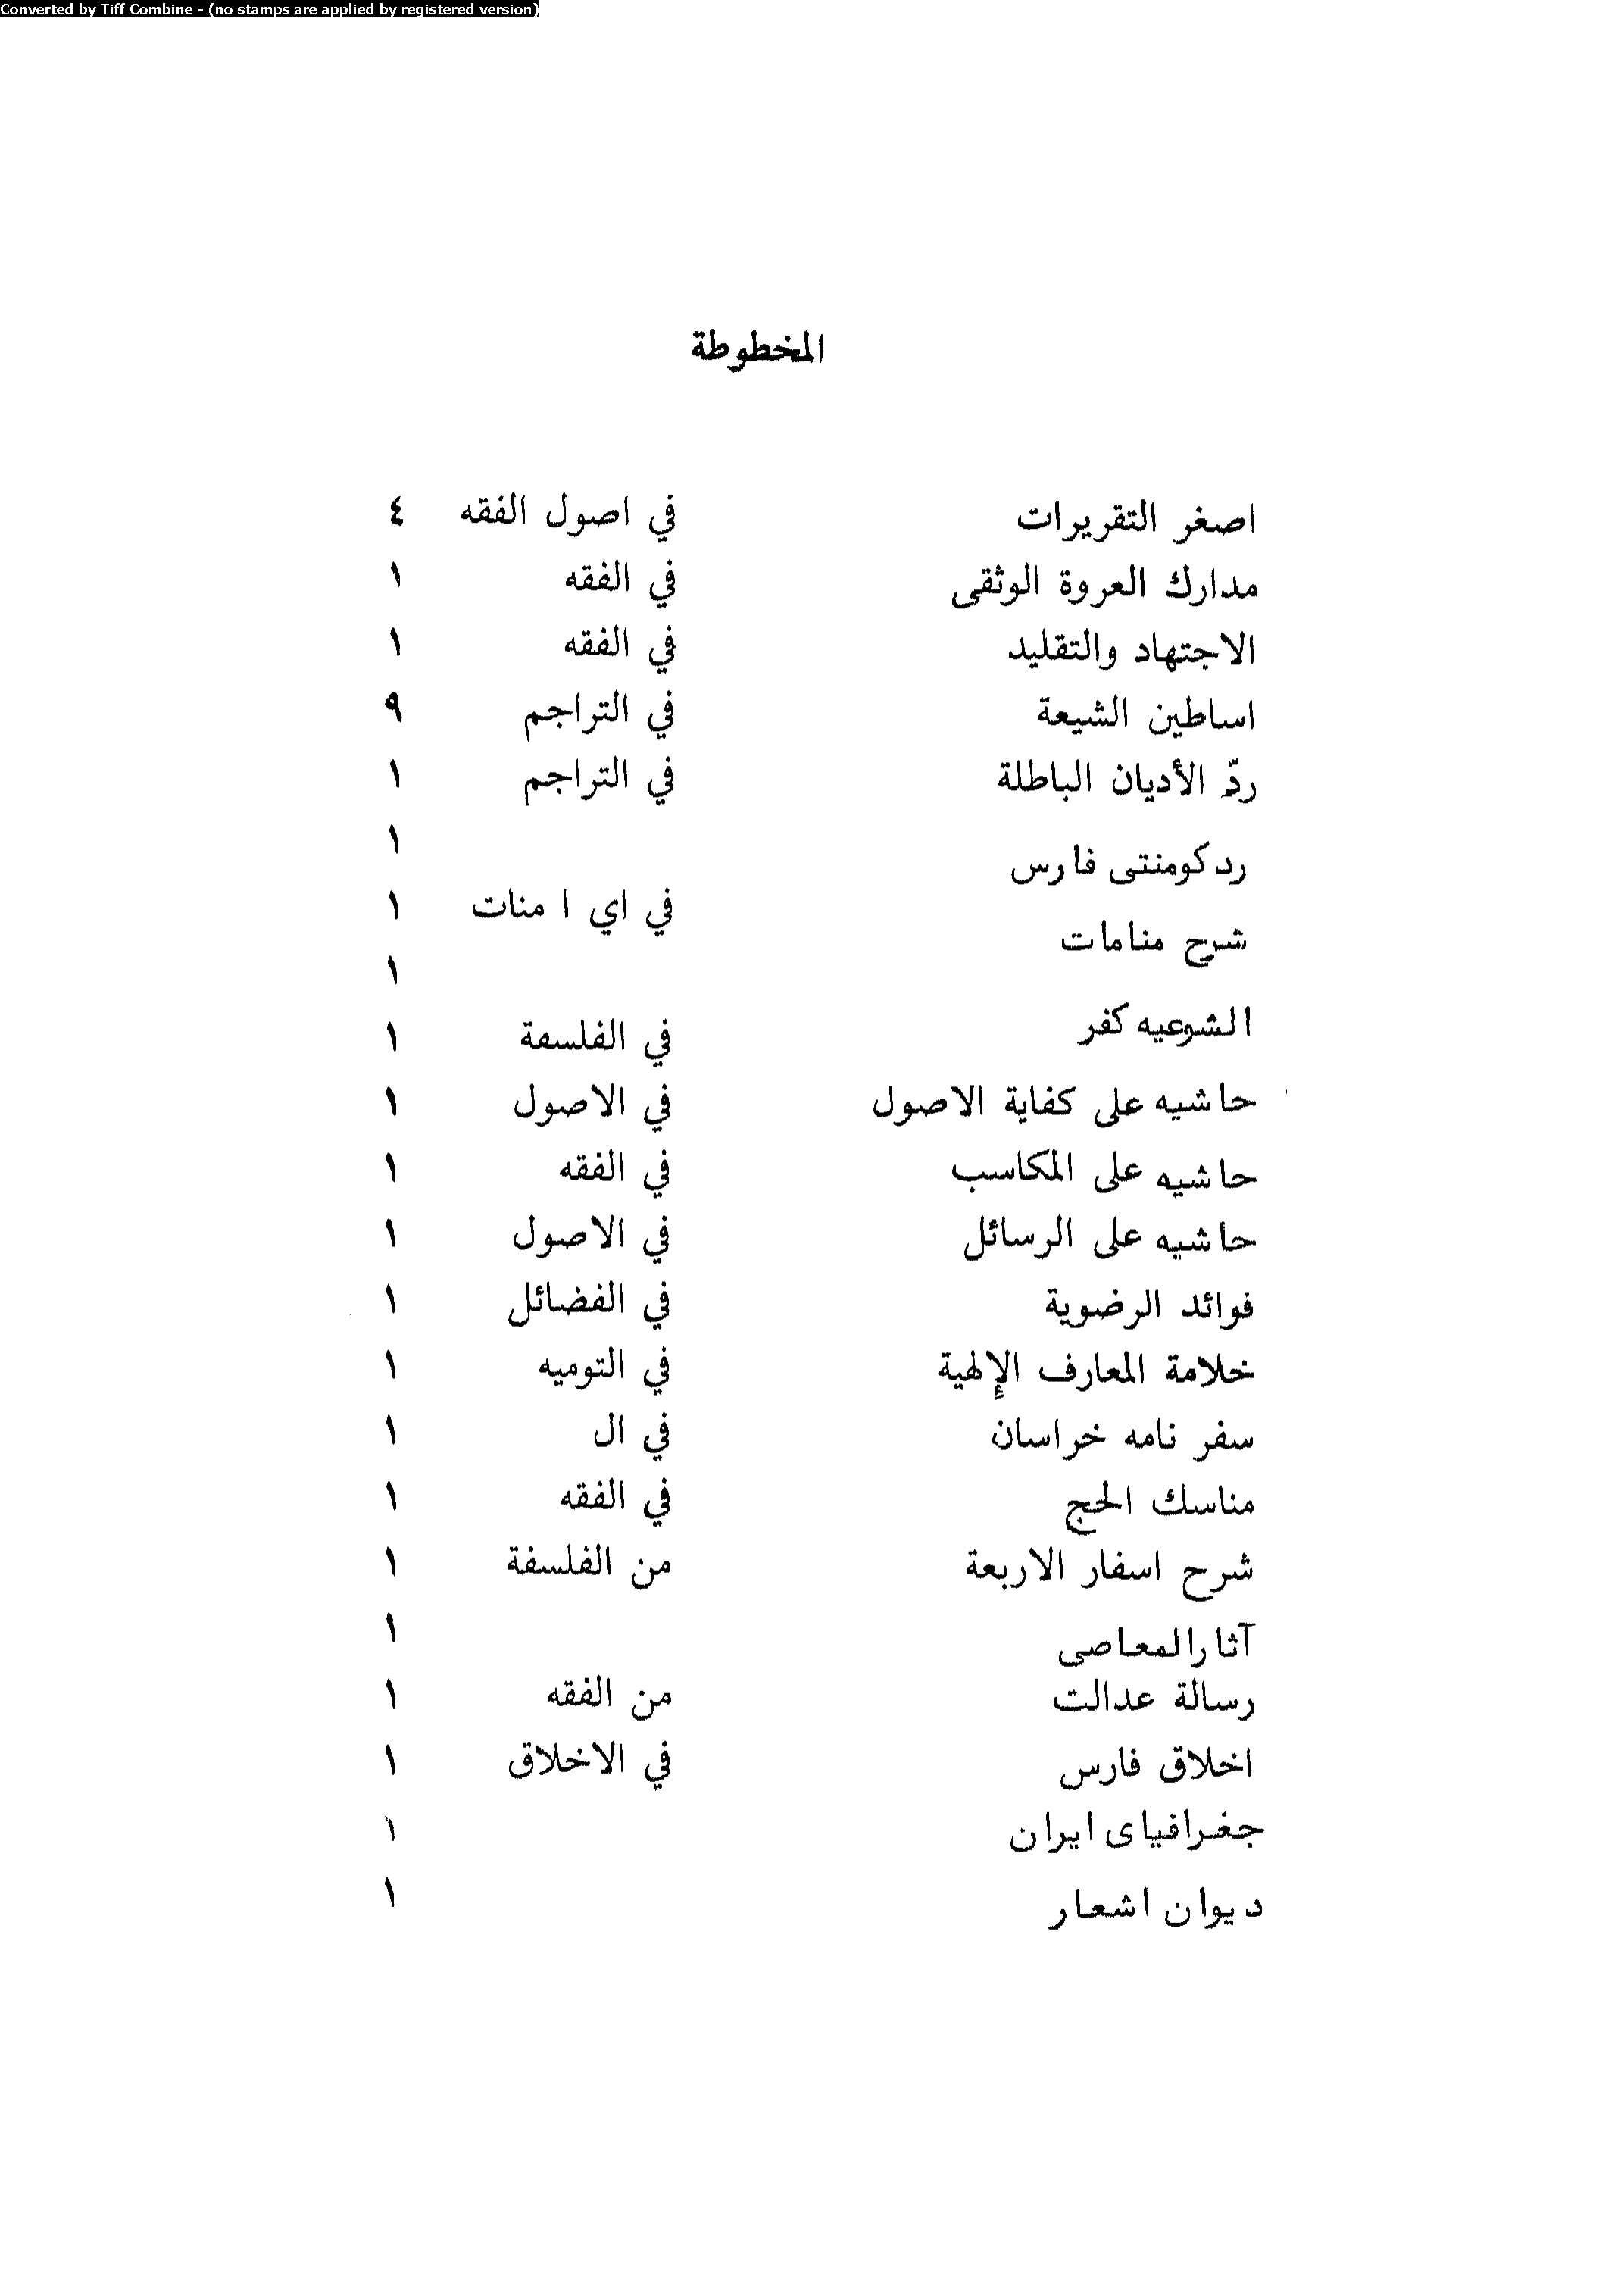 Converted by Tiff Combine - (no stamps are applied by registered version)
المخطوطة
اصغر التقريرات في اصول الفقه ٤
مدارك العروة الوثقى في الفقه ١
الاجتهاد والتقليد في الفقه ١
اساطين الشيعة في التراجم ٩
ردّ الأديان الباطلة في التراجم ١
رد كومنتى فارس ١
شرح منامات في اي ا منات ١
الشوعيه كفر ١
في الفلسفة ١
حاشيه على كفاية الاصول في الاصول ١
حاشيه على المكاسب في الفقه ١
حاشيه على الرسائل في الاصول ١
فوائد الرضوية في الفضائل ١
خلامة المعارف الإلهية في التوميه ١
سفر نامه خراسان في ال ١
مناسك الحج في الفقه ١
شرح اسفار الاربعة من الفلسفة ١
آثار المعاصى ١
رسالة عدالت من الفقه ١
اخلاق فارس في الاخلاق ١
جغرافياى ايران ١
ديوان اشعار ١